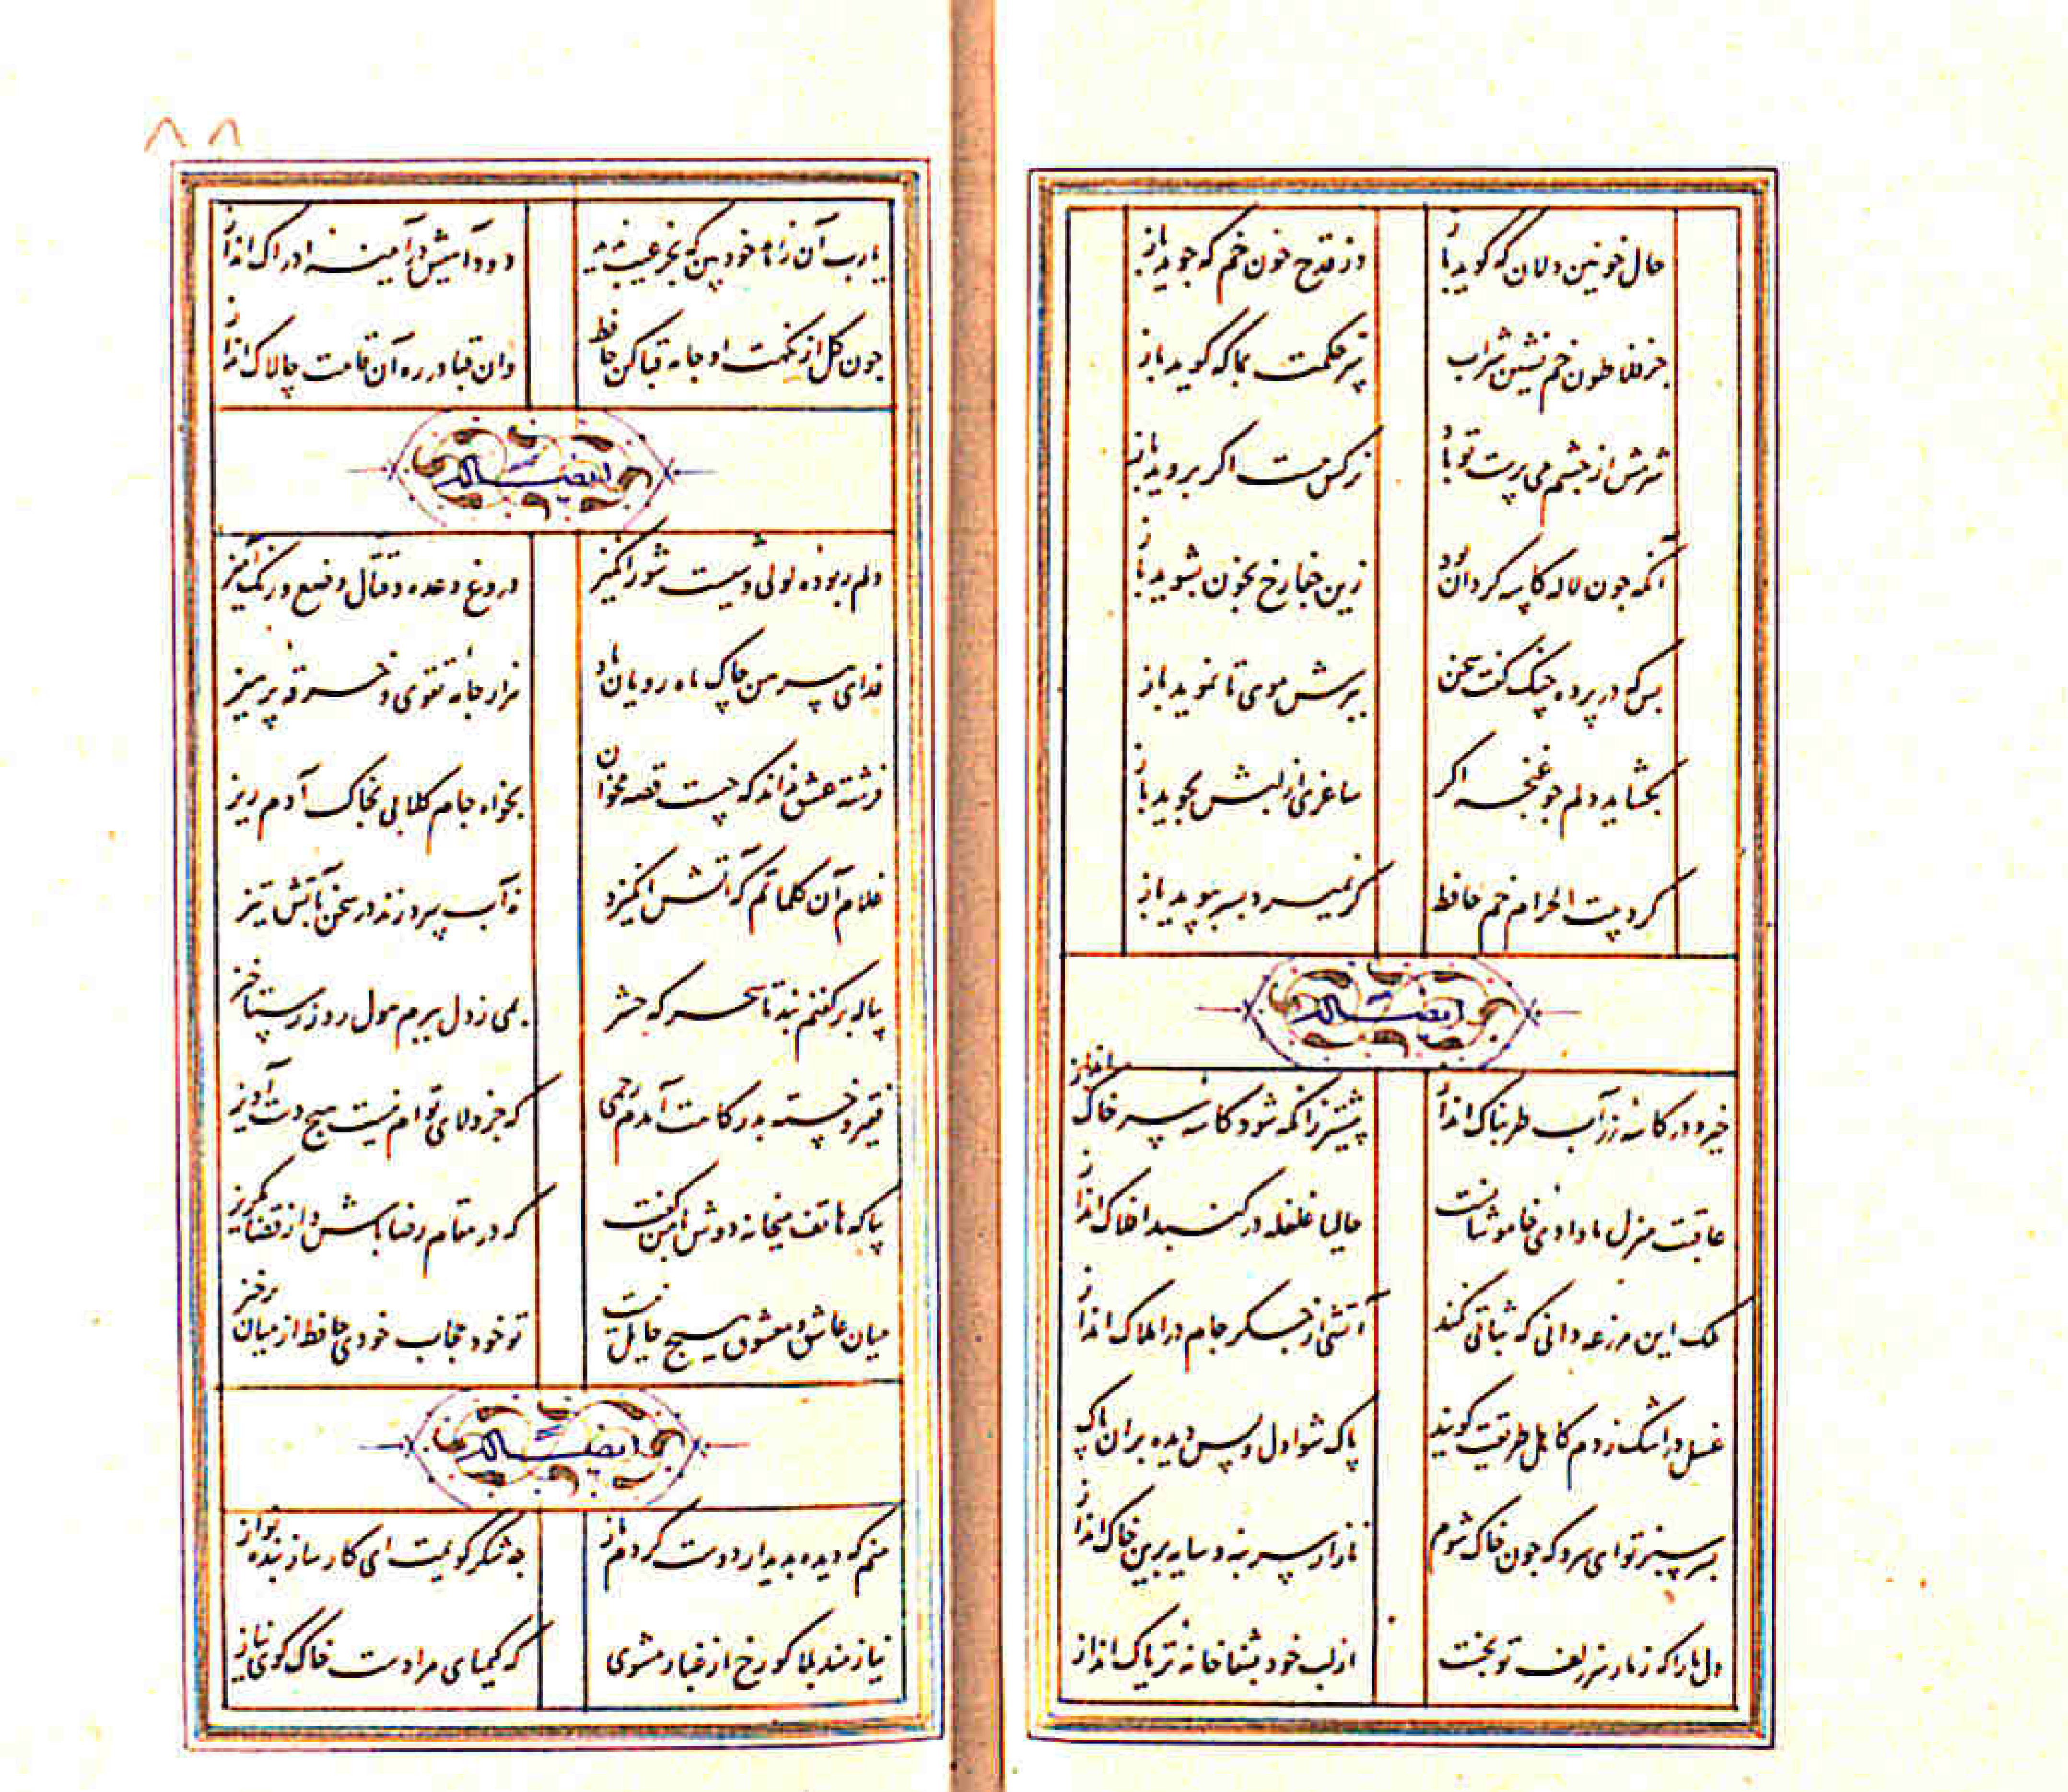 حال خونین دلان که گوید باز وز فلک خون خم که جوید باز
جز فلاطون خم نشین شراب سر حکمت بما که گوید باز
شرمش از چشم می پرست تو باد نرکس مست اکر بروید باز
آنکه جون لاله کاسه کردان بود زین جفا رخ بخون بشوید باز
بس که در پرده چنک کفت سخن ببرش موی تا نموید باز
بکشاید دلم جو غنچه اکر ساغری از لبش بجوید باز
کرد بیت الحرام خم حافظ کر نمیرد بسر بپوید باز
ایضاً له
خیز و در کاسه زر آب طربناک انداز پیشتر زانکه شود کاسه سر خاک انداز
عاقبت منزل ما وادی خاموشانست حالیا غلغله در کنبد افلاک انداز
ملک این مزرعه دانی که ثباتی نکند آتشی از جکر جام در املاک انداز
غسل در اشک زدم کاهل طریقت کویند پاک شو اول و پس دیده بران پاک انداز
بسر سبز تو ای سرو که جون خاک شوم ناز از سر بنه و سایه برین خاک انداز
دل ما را که ز مار سر زلف تو بخست از لب خود بشفاخانه تریاک انداز
۸۸
یارب آن زاهد خودبین که بجز عیب ندید دود آهیش در آیینه ادراک انداز
جون کل از نکهت او جامه قبا کن حافظ وان قبا در ره آن قامت چالاک انداز
ایضاً له
دلم ربوده لولی وشیست شورانکیز دروغ وعده و قتّال وضع و رنک آمیز
فدای پیرهن چاک ماه رویان باد هزار جامه تقوی و خرقه پرهیز
فرشته عشق نداند که چیست قصه مخوان بخواه جام کلابی بخاک آدم ریز
غلام آن کلماتم که آتش انکیزد نه آب سرد زند در سخن بآتش تیز
پیاله بر کفنم بند تا سحرکه حشر بمی ز دل ببرم هول روز رستاخیز
فقیر و خسته بدرکاهت آمدم رحمی که جز ولای توام نیست هیچ دست آویز
بیا که هاتف میخانه دوش با من کفت که در مقام رضا باش و از قضا مکریز
میان عاشق و معشوق هیچ حایل نیست تو خود حجاب خودی حافظ از میان برخیز
ایضاً له
منم که دیده بدیدار دوست کردم باز چه شکر کویمت ای کار ساز بنده نواز
نیازمند بلا کو رخ از غبار مشوی که کیمیای مرادست خاک کوی نیاز